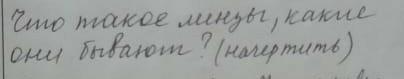 Что такое линзы, какие
они бывают? (начертить)